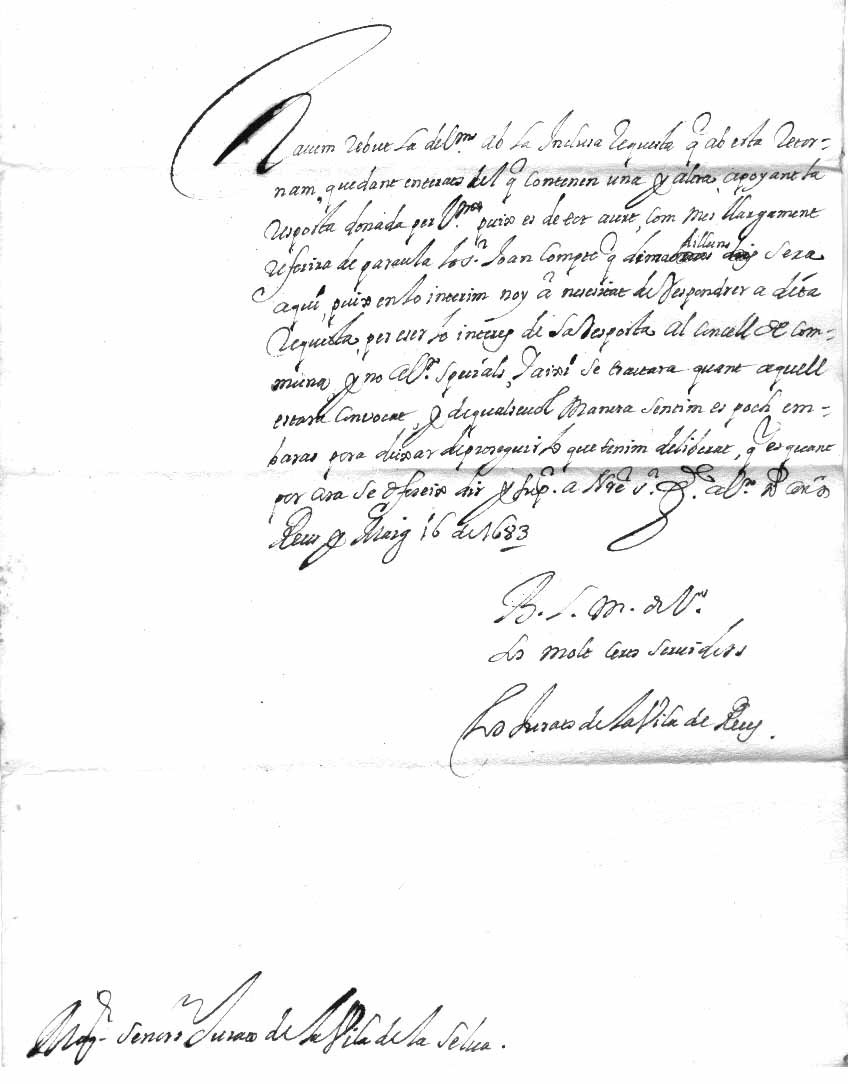 Havem rebut la de V.ms ab la Inclusa requesta q̃ ab esta retor=
nam, quedant enterats del q̃ contenen una y altra, apoyant la
resposta donada per V.ms puix es de tot acert, com mes llargament
referira de paraula lo s.r Joan Compte q̃ dilluns sera
aqui, puix en lo interim noy á necesitat de respondrer a dita
requesta, per eser lo interes de sa resposta al Concell de Com=
muna, y no a V.ms specials, y axi se tractara quant aquell
estara Convocat, y de qualseuol manera sentim es poch em=
baras pera dexar de proseguir lo que tenim deliberat, q̃ es quant
per ara se ofereix dir y sup.m a Nre s.r g.e a V.ms
Reus y Maig 16 de 1683
B. L. M. de V.ms
Los molt Certs seruidors
Los Jurats de la Vila de Reus.
Mag.chs Senors Jurats de la Vila de la Selua.